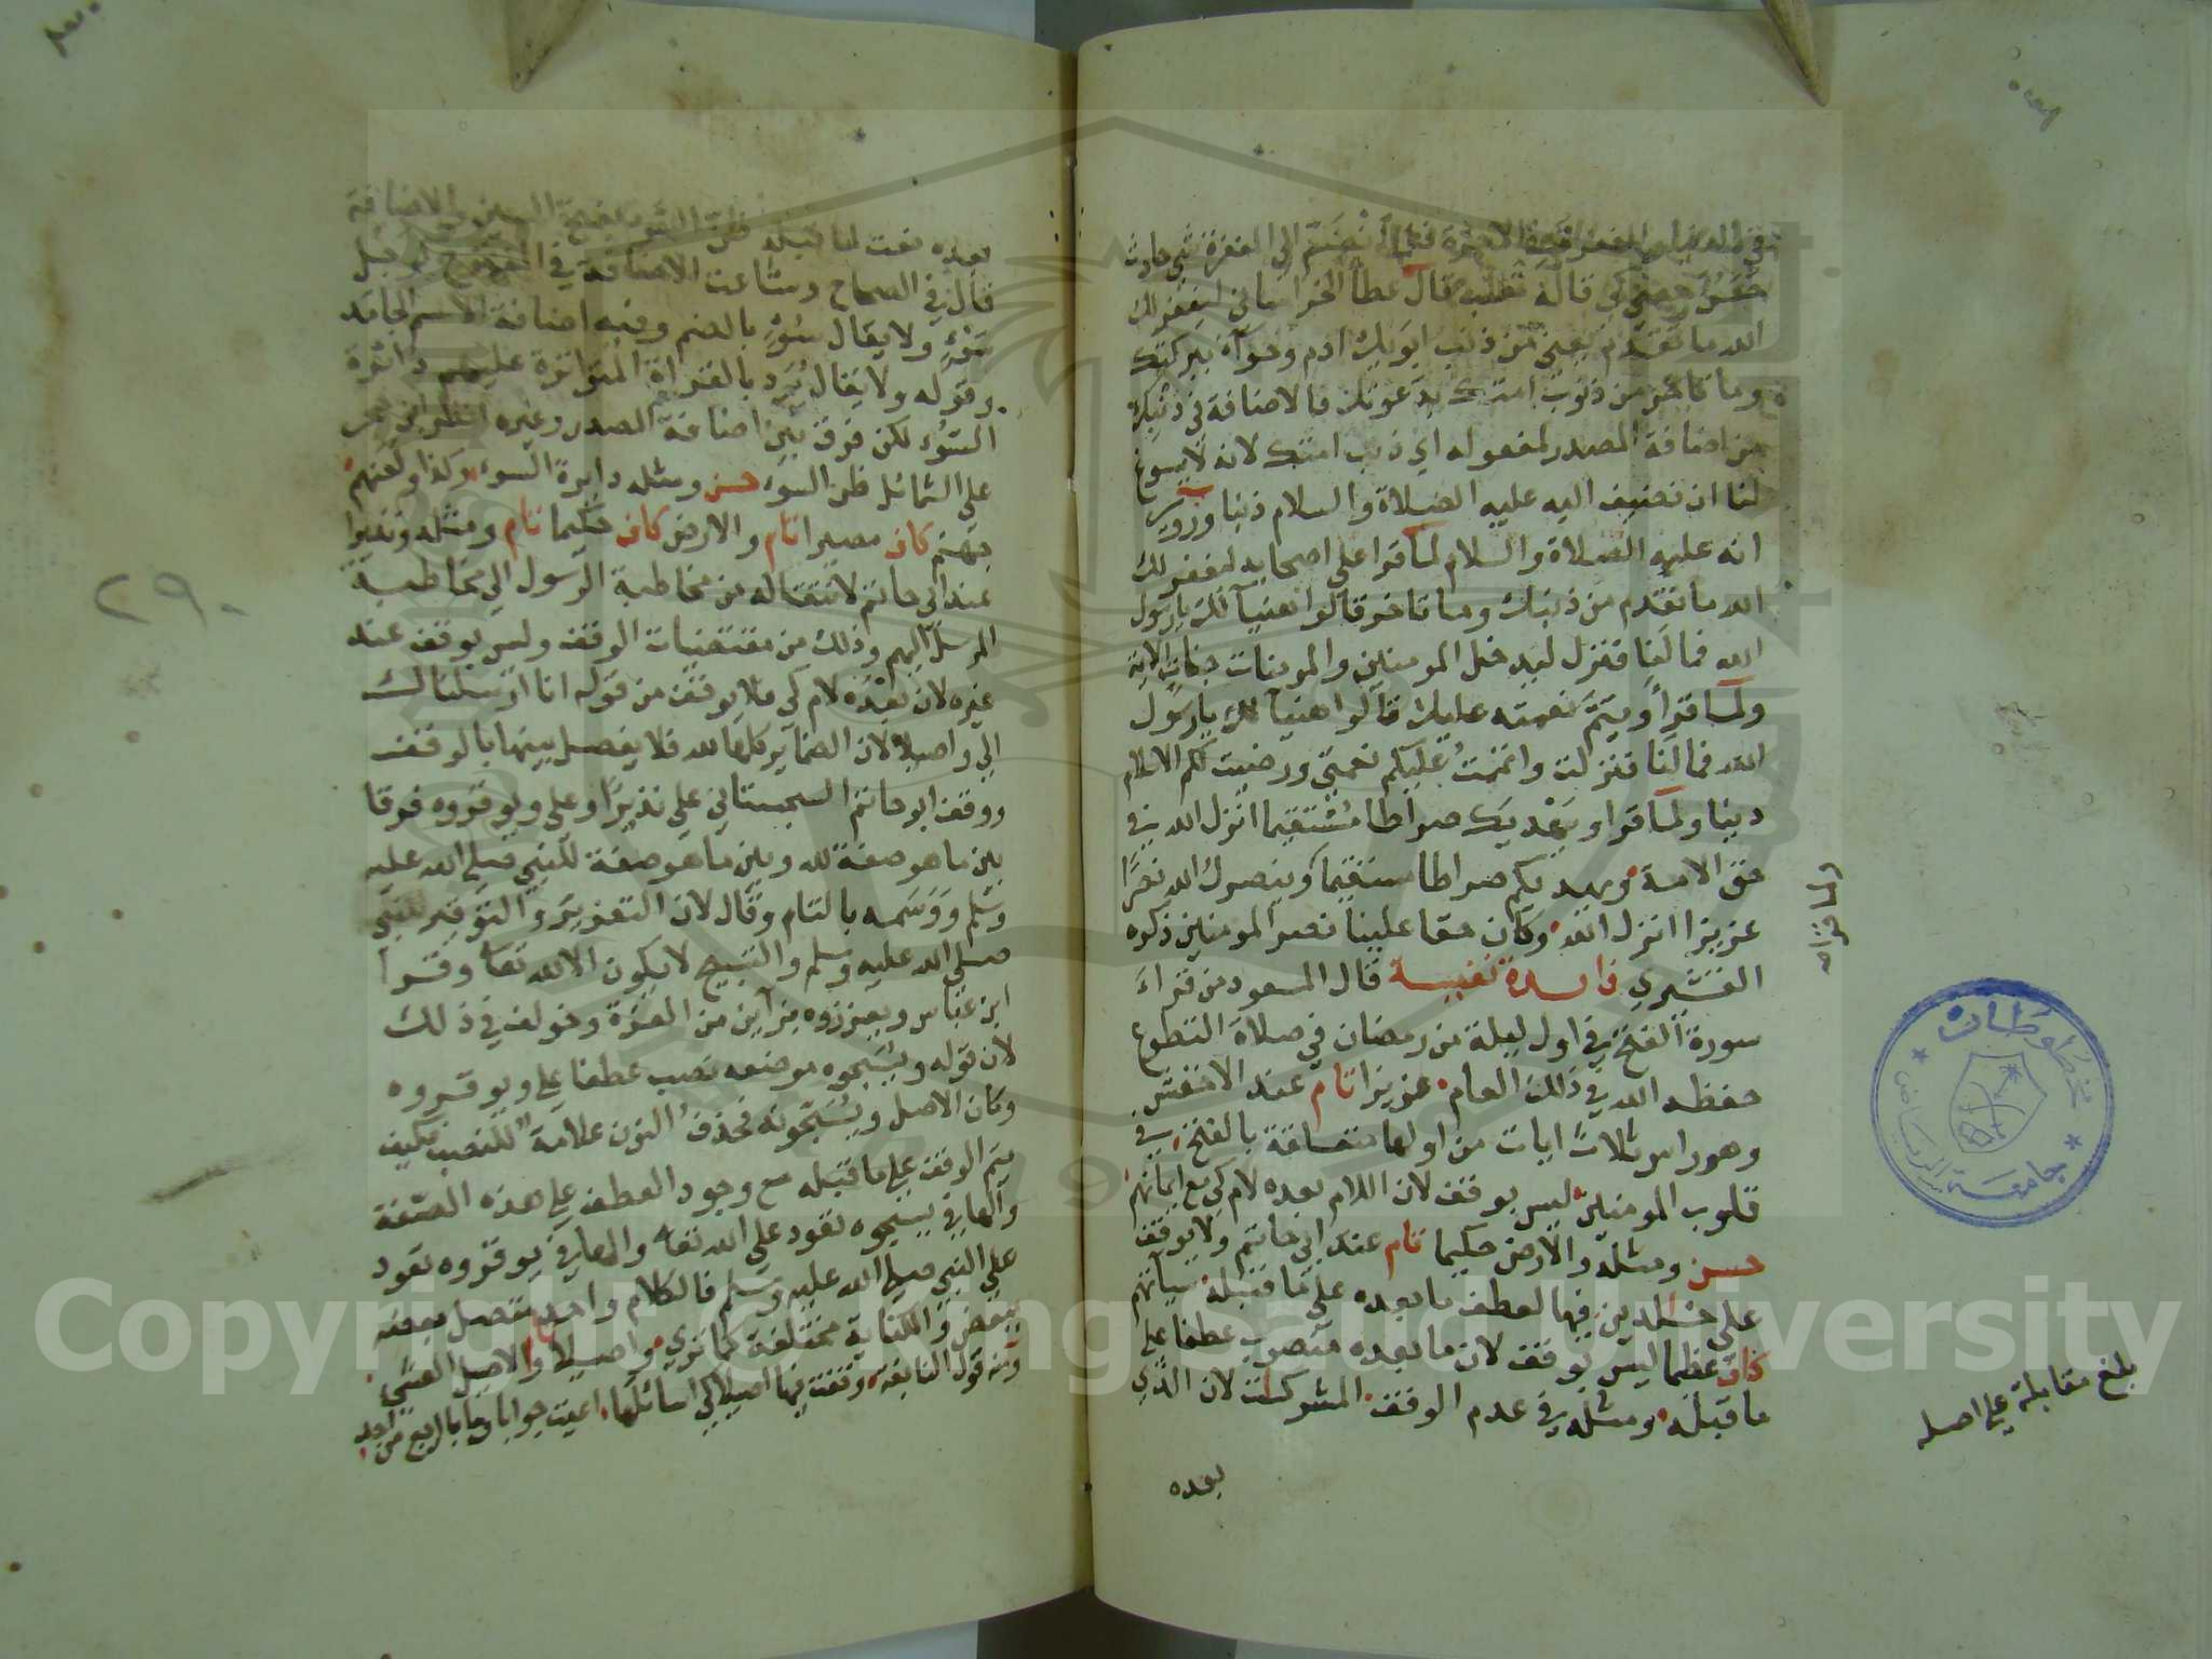 في الدنيا والمغفرة في الآخرة فلما انضم الى المغفرة شي حادث
حسن معني كي قاله ثعلب قال عطا الخراساني ليغفر لك
الله ما تقدم يعني من ذنب ابويك ادم وحوآء ببركتك
وما تاخر من ذنوب امتك بدعوتك فالاضافة في ذنبك
من اضافة المصدر لمفعوله اي ذنب امتك لانه لا يسوغ
لنا ان نضيف اليه عليه الصلاة والسلام ذنبا وروي
انه عليه الصلاة والسلام لما قرا على اصحابه ليغفر لك
الله ما تقدم من ذنبك وما تاخر قالوا هنيآ لك يا رسول
الله فما لنا فنزل ليدخل المومنين والمومنات جنات الاية
ولما قرأ ويتم نعمته عليك قالوا هنيا لك يا رسول
الله فما لنا فنزلت واتممت عليكم نعمتي ورضيت لكم الاسلام
دينا ولما قرا ويهديك صراطا مستقيما انزل الله في
حق الامة ويهديكم صراطا مستقيما وينصرك الله نصرا
عزيزا انزل الله وكان حقا علينا نصر المومنين ذكره
القشيري فايدة نفيسة قال المسعود من قراء
سورة الفتح في اول ليلة من رمضان في صلاة التطوع
حفظه الله في ذلك العام عزيزا تام عند الاخفش
وهو راس ثلاث ايات من اولها متعلقة بالفتح في
قلوب المومنين ليس بوقف لان اللام بعده لام كي مع ايمانهم
حسن ومثله والارض حكيما تام عند ابي حاتم ولا يوقف
على خالدين فيها لعطف ما بعده على ما قبله سيآتهم
كاف عظيما ليس بوقف لان ما بعده منصوب عطفا على
ما قبله ومثله في عدم الوقف المشركات لان الذي
بعده
ولما قرا
بلغ مقابلة على اصله
مخطوطات
جامعة الرياض
بعده نعت لما قبله ظن السوء بفتح السين والاضافة
قال في الصحاح وشاعت الاضافة في المفتوح كرجل
سوء ولا يقال سوء بالضم وفيه اضافة الاسم الجامد
وقوله ولا يقال يرد بالقراة المتواترة عليهم دائرة
السوء لكن فرق بين اضافة المصدر وغيره انظر ابن حجر
على الشمائل ظن السوء حسن ومثله دايرة السوء وكذا ولعنهم
جهنم كاف مصيرا تام والارض كاف حكيما تام ومثله ونذيرا
عند ابي حاتم لانتقاله من مخاطبة الرسول الى مخاطبة
المرسل اليهم وذلك من مقتضيات الوقف وليس بوقف عند
غيره لان بعده لام كي فلا يوقف من قوله انا ارسلناك
الى واصيلا لان الضمآير كلها لله فلا يفصل بينها بالوقف
ووقف ابو حاتم السجستاني على نذيرا وعلى ويوقروه فرقا
بين ما هو صفة لله وبين ما هو صفة للنبي صلى الله عليه
وسلم ووسمه بالتام وقال لان التعزير والتوقير للنبي
صلى الله عليه وسلم والتسبيح لا يكون الا لله تعا وقرا
ابن عباس ويعززوه بزآين من العزة وخولف في ذلك
لان قوله ويسبحوه موضعه نصب عطفا على ويوقروه
وكان الاصل ويسبحونه فحذف النون علامة للنصب فكيف
يتم الوقف على ما قبله مع وجود العطف على هذه الصفة
والها في يسبحوه تعود على الله تعا والها في يوقروه تعود
على النبي صلى الله عليه وسلم فالكلام واحد متصل بعضه
ببعض والكناية مختلفة كما تري واصيلا والاصيل العشي
ومنه قول النابغة وقفت فيها اصيلا كي اسائلها اعيت جوابا وما بالربع من احد
٢٩٠
Copyright © King Saud University